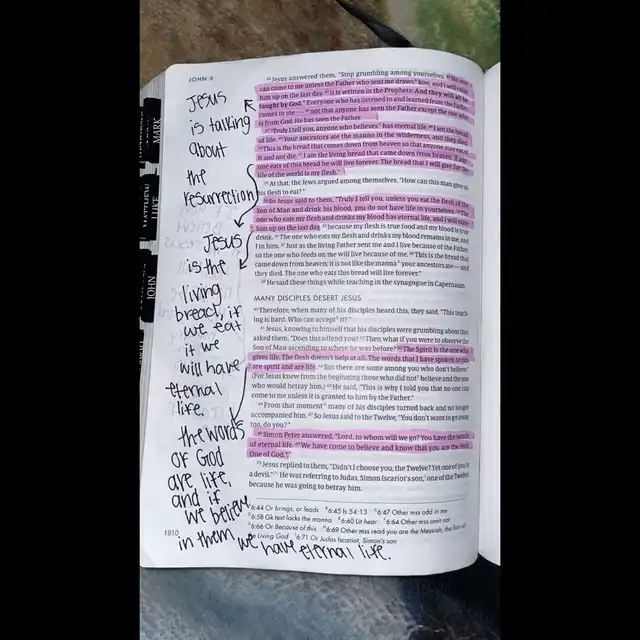 JOHN 6
Jesus
is talking
about
the
resurrection
Jesus
is the
living
bread, if
we eat
it we
will have
eternal
life.
the words
of God
are life,
and if
we believe
in them we have eternal life.
MARK
LUKE
JOHN
43 Jesus answered them, "Stop grumbling among yourselves. 44 No one
can come to me unless the Father who sent me draws him, and I will raise
him up on the last day. 45 It is written in the Prophets: And they will all be
taught by God. Everyone who has listened to and learned from the Father
comes to me — 46 not that anyone has seen the Father except the one who
is from God. He has seen the Father.
47 "Truly I tell you, anyone who believes has eternal life. 48 I am the bread
of life. 49 Your ancestors ate the manna in the wilderness, and they died.
50 This is the bread that comes down from heaven so that anyone may eat
it and not die. 51 I am the living bread that came down from heaven. If any
one eats of this bread he will live forever. The bread that I will give for the
life of the world is my flesh."
52 At that, the Jews argued among themselves, "How can this man give us
his flesh to eat?"
53 So Jesus said to them, "Truly I tell you, unless you eat the flesh of the
Son of Man and drink his blood, you do not have life in yourselves. 54 The
one who eats my flesh and drinks my blood has eternal life, and I will raise
him up on the last day, 55 because my flesh is true food and my blood is true
drink. 56 The one who eats my flesh and drinks my blood remains in me, and
I in him. 57 Just as the living Father sent me and I live because of the Father,
so the one who feeds on me will live because of me. 58 This is the bread that
came down from heaven; it is not like the manna your ancestors ate — and
they died. The one who eats this bread will live forever."
59 He said these things while teaching in the synagogue in Capernaum.
MANY DISCIPLES DESERT JESUS
60 Therefore, when many of his disciples heard this, they said, "This teach
ing is hard. Who can accept it?"
61 Jesus, knowing in himself that his disciples were grumbling about this,
asked them, "Does this offend you? 62 Then what if you were to observe the
Son of Man ascending to where he was before? 63 The Spirit is the one who
gives life. The flesh doesn't help at all. The words that I have spoken to you
are spirit and are life. 64 But there are some among you who don't believe."
(For Jesus knew from the beginning those who did not believe and the one
who would betray him.) 65 He said, "This is why I told you that no one can
come to me unless it is granted to him by the Father."
66 From that moment many of his disciples turned back and no longer
accompanied him. 67 So Jesus said to the Twelve, "You don't want to go away
too, do you?"
68 Simon Peter answered, "Lord, to whom will we go? You have the words
of eternal life. 69 We have come to believe and know that you are the Holy
One of God."
70 Jesus replied to them, "Didn't I choose you, the Twelve? Yet one of you is
a devil." 71 He was referring to Judas, Simon Iscariot's son, one of the Twelve,
because he was going to betray him.
6:44 Or brings, or leads 6:45 Is 54:13 6:47 Other mss add in me
6:58 Gk text lacks the manna 6:60 Lit hear 6:64 Other mss omit not
6:66 Or Because of this 6:69 Other mss read you are the Messiah, the Son of
the Living God 6:71 Or Judas Iscariot, Simon's son
1810